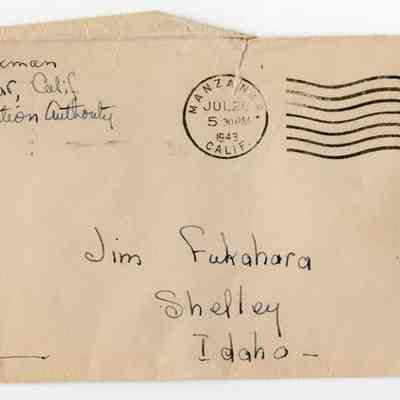 kman
ar, Calif
tion Authority
MANZANAR
JUL 26
5 30 PM
1943
CALIF.
Jim Fukahara
Shelley
Idaho -